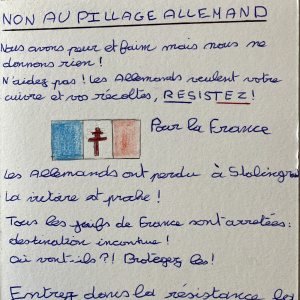 NON AU PILLAGE ALLEMAND
Nous avons peur et faim mais nous ne
donnons rien !
N'aidez pas ! les Allemands veulent votre
cuivre et vos récoltes, RESISTEZ !
Pour la France
Les Allemands ont perdu à Stalingra
La victoire est proche !
Tous les juifs de France sont arretées :
destination inconnue !
où vont-ils ?! Protegez les !
Entrez dans la résistance la